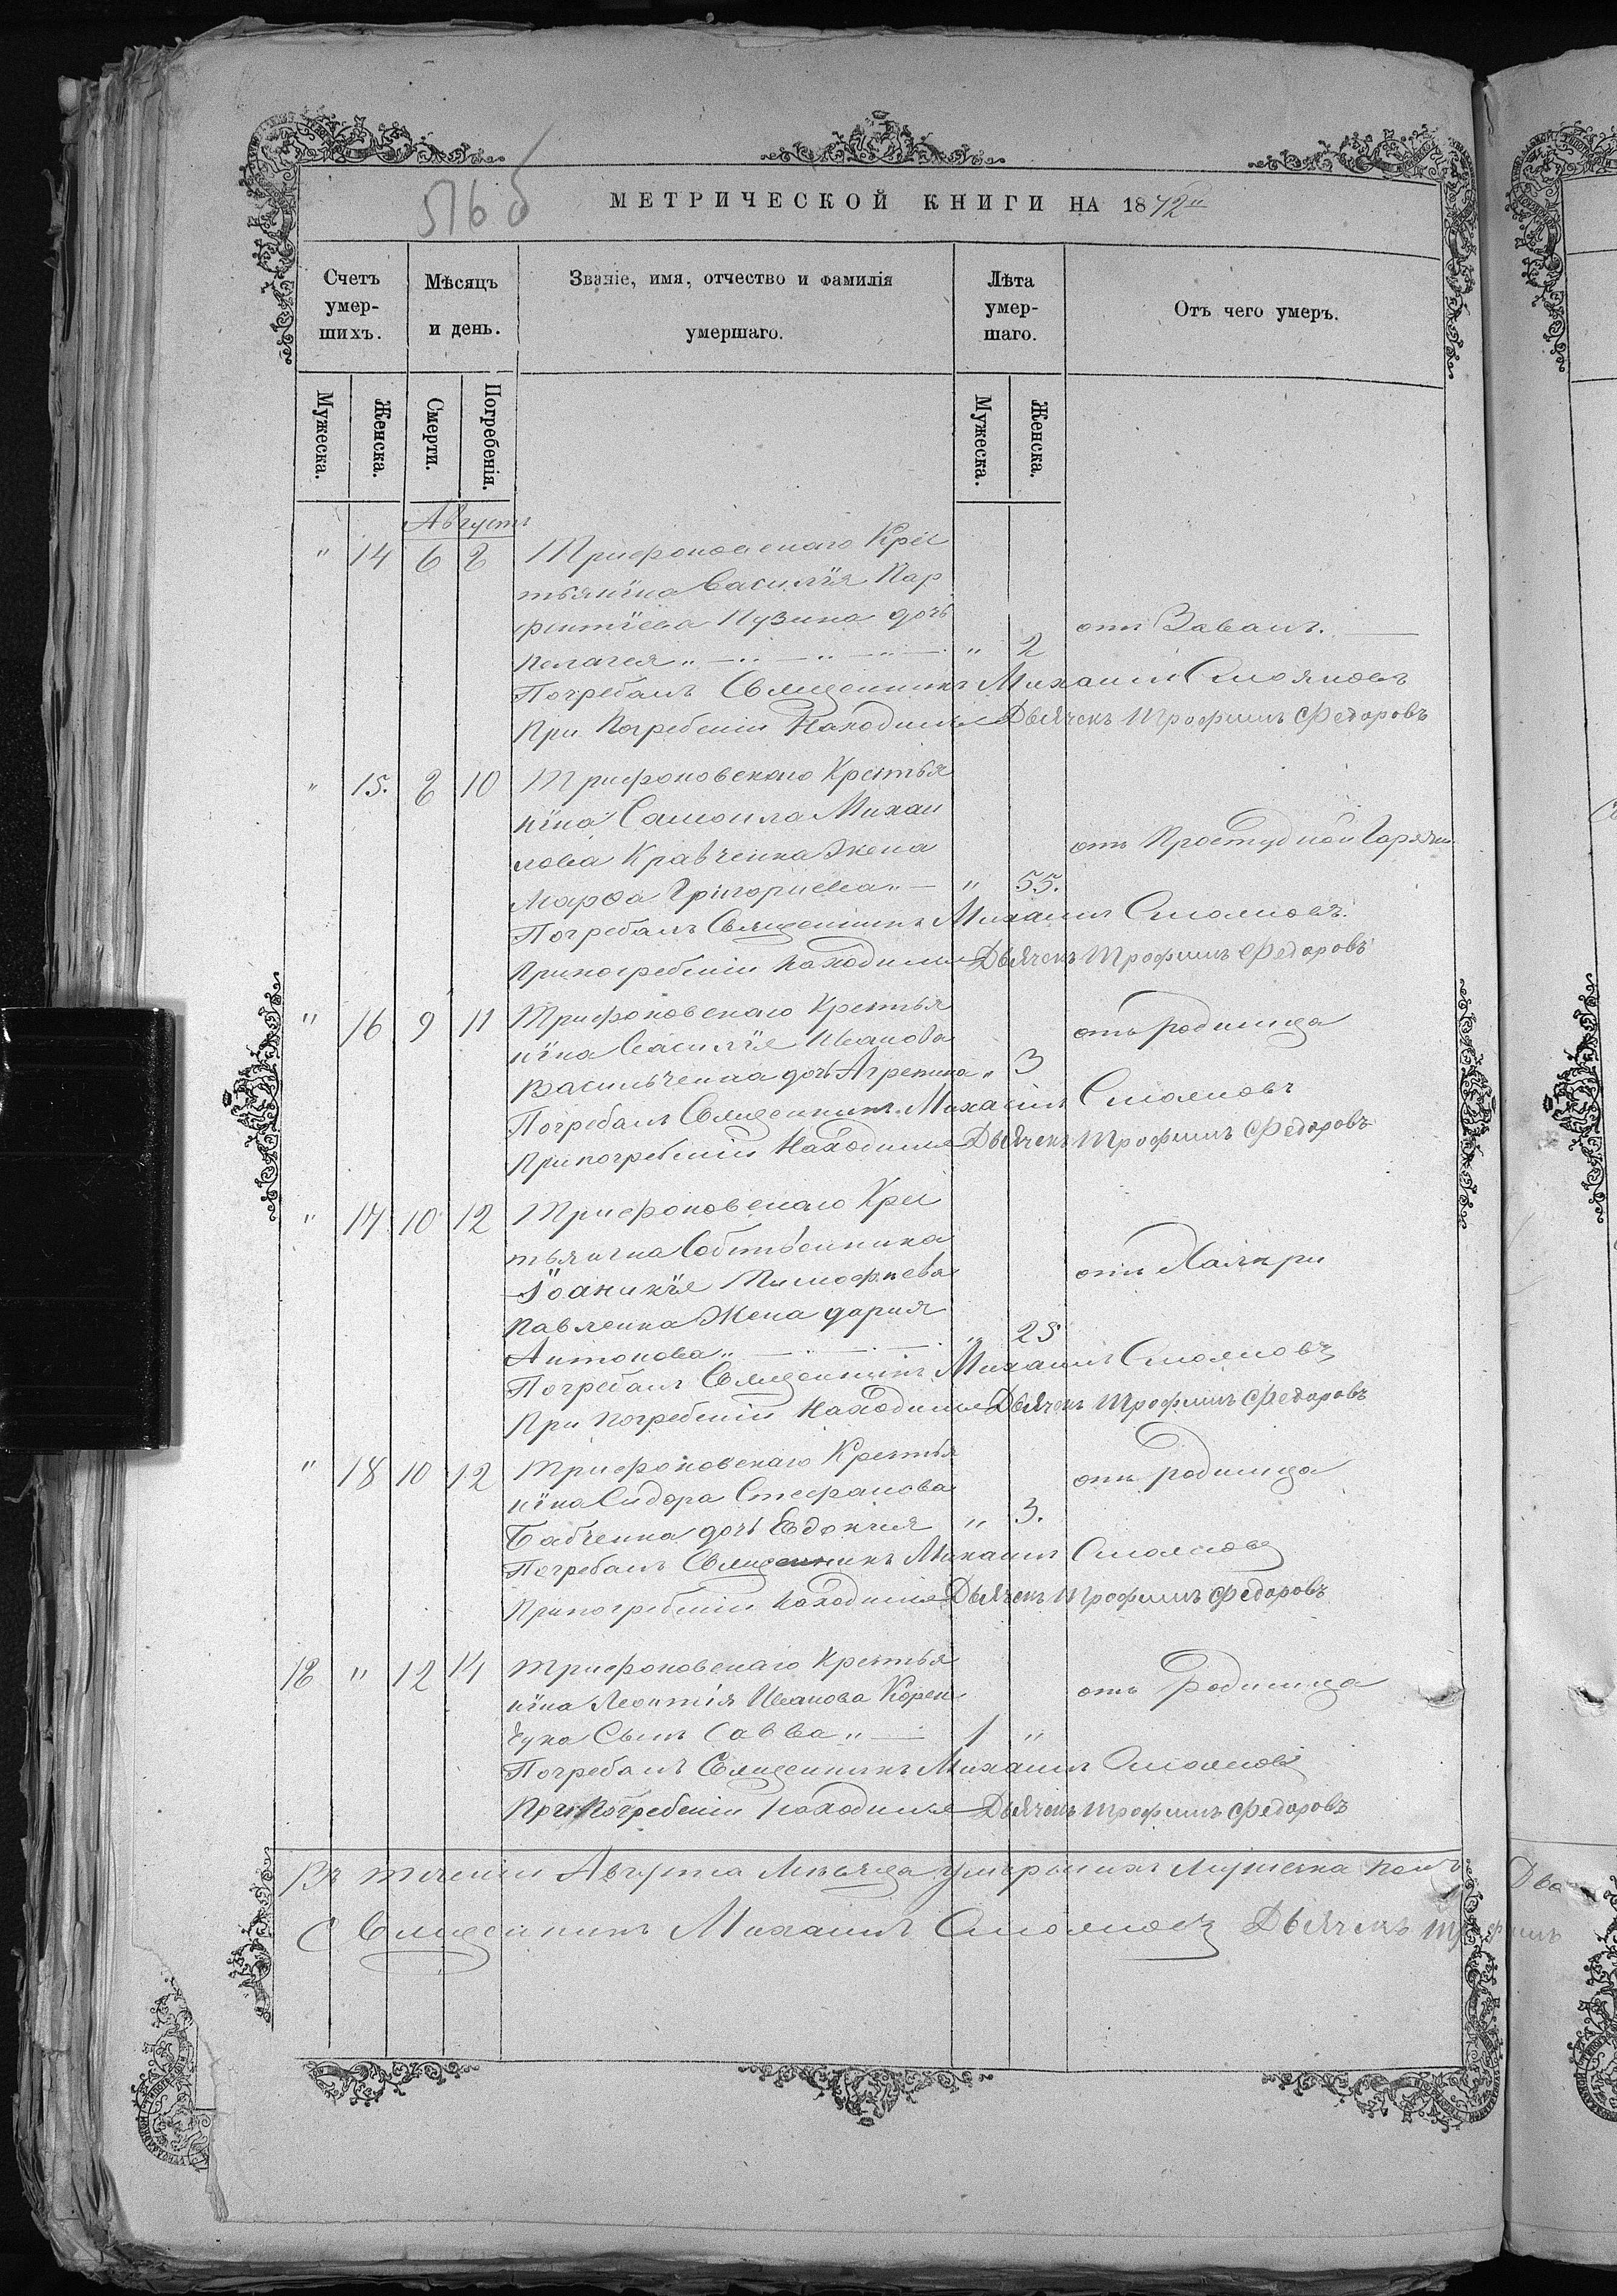 516 б
МЕТРИЧЕСКОЙ КНИГИ НА 1872й
Счетъ умер- шихъ.
Мѣсяцъ и день.
Званіе, имя, отчество и фамилія умершаго.
Лѣта умер- шаго.
Отъ чего умеръ.
Мужеска. Женска. Смерти. Погребенія. Мужеска. Женска.
Августъ
" 14 6 8 Трифоновскаго Крес
тьянїна Василїя Пар
фентїева Пузина дочь
Пелагея " " 2
Погребалъ Священникъ Михаилъ
При Погребенїи Находился Дьячекъ Трофимъ Федоровъ
" 15. 8 10 Трифоновскаго Крестья
нїна Самоила Михаи
лова Кравченка Жена отъ Простудной Горячк.
Марѳа Григориева " " 55.
Погребалъ Священникъ Михаилъ
Припогребенїи находился Дьячекъ Трофимъ Федоровъ
" 16 9 11 Трифоновскаго Крестья отъ родимца
нїна Василїя Иванова
Васильченка дочь Агрепина " 3
Погребалъ Священникъ Михаилъ
Припогребенїи Находился Дьячекъ Трофимъ Федоровъ
" 17 10 12 Трифоновскаго Крес
тьянина Собственника
Іоаникїя Тимофѣева
Павленка Жена дария
Антонова " " 25
Погребалъ Священникъ Михаилъ
При погребенїи Находился Дьячекъ Трофимъ Федоровъ
" 18 10 12 Трифоновскаго Крестья отъ родимца
нїна Сидора Стефанова
Бабченка дочь Евдокия " 3.
Погребалъ Священникъ Михаилъ
Припогребенїи находился Дьячекъ Трофимъ Федоровъ
18 " 12 14 Трифоновскаго Крестья
нїна Леонтїя Иванова Корен отъ Родимца
чука Сынъ Савва " 1 "
Погребалъ Священникъ Михаилъ
При Погребенїи находился Дьячекъ Трофимъ Федоровъ
Въ теченїи Августа Мѣсяца умершихъ Мужеска
Священникъ Михаилъ Дьячекъ Трофимъ